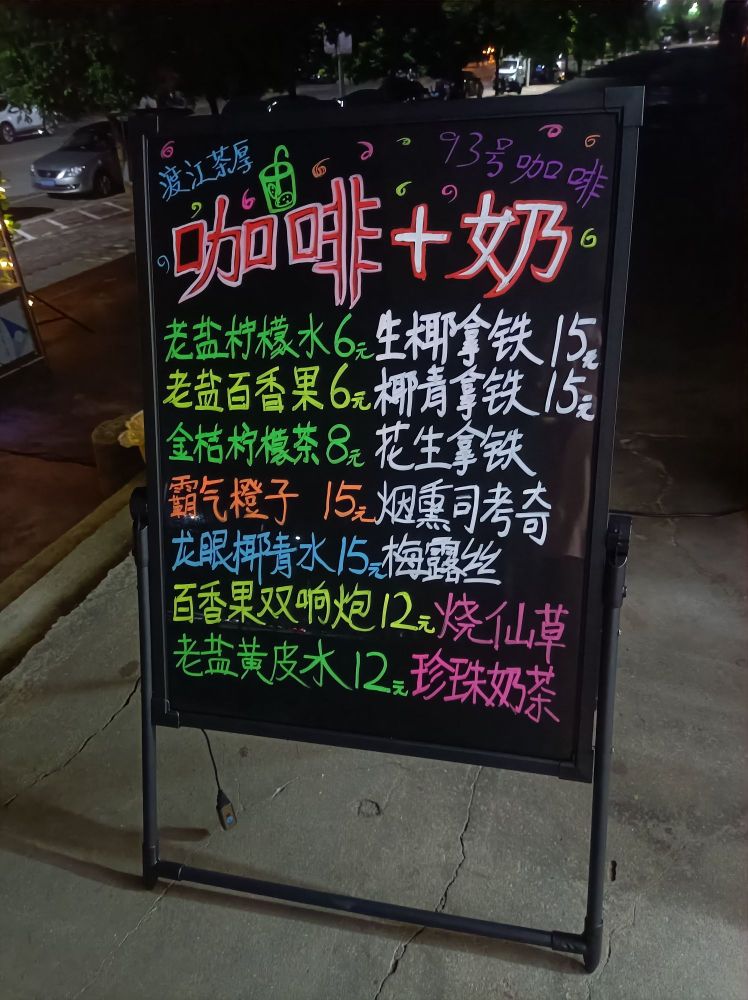 渡江茶厚
93号咖啡
咖啡+奶
老盐柠檬水6元
生椰拿铁 15元
老盐百香果6元
椰青拿铁 15元
金桔柠檬茶8元
花生拿铁
霸气橙子 15元
烟熏司考奇
龙眼椰青水15元
梅露丝
百香果双响炮12元
烧仙草
老盐黄皮水12元
珍珠奶茶